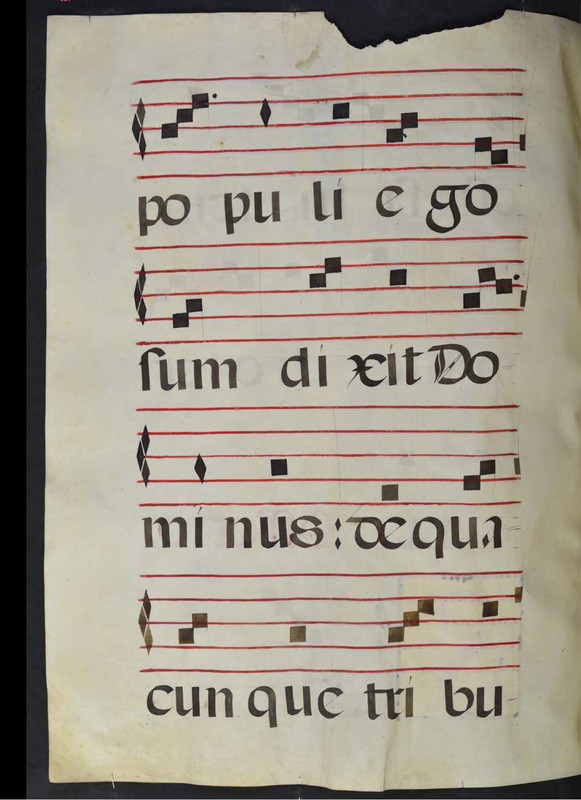 po pu li e go
sum di xit Do
mi nus : de qua
cun que tri bu